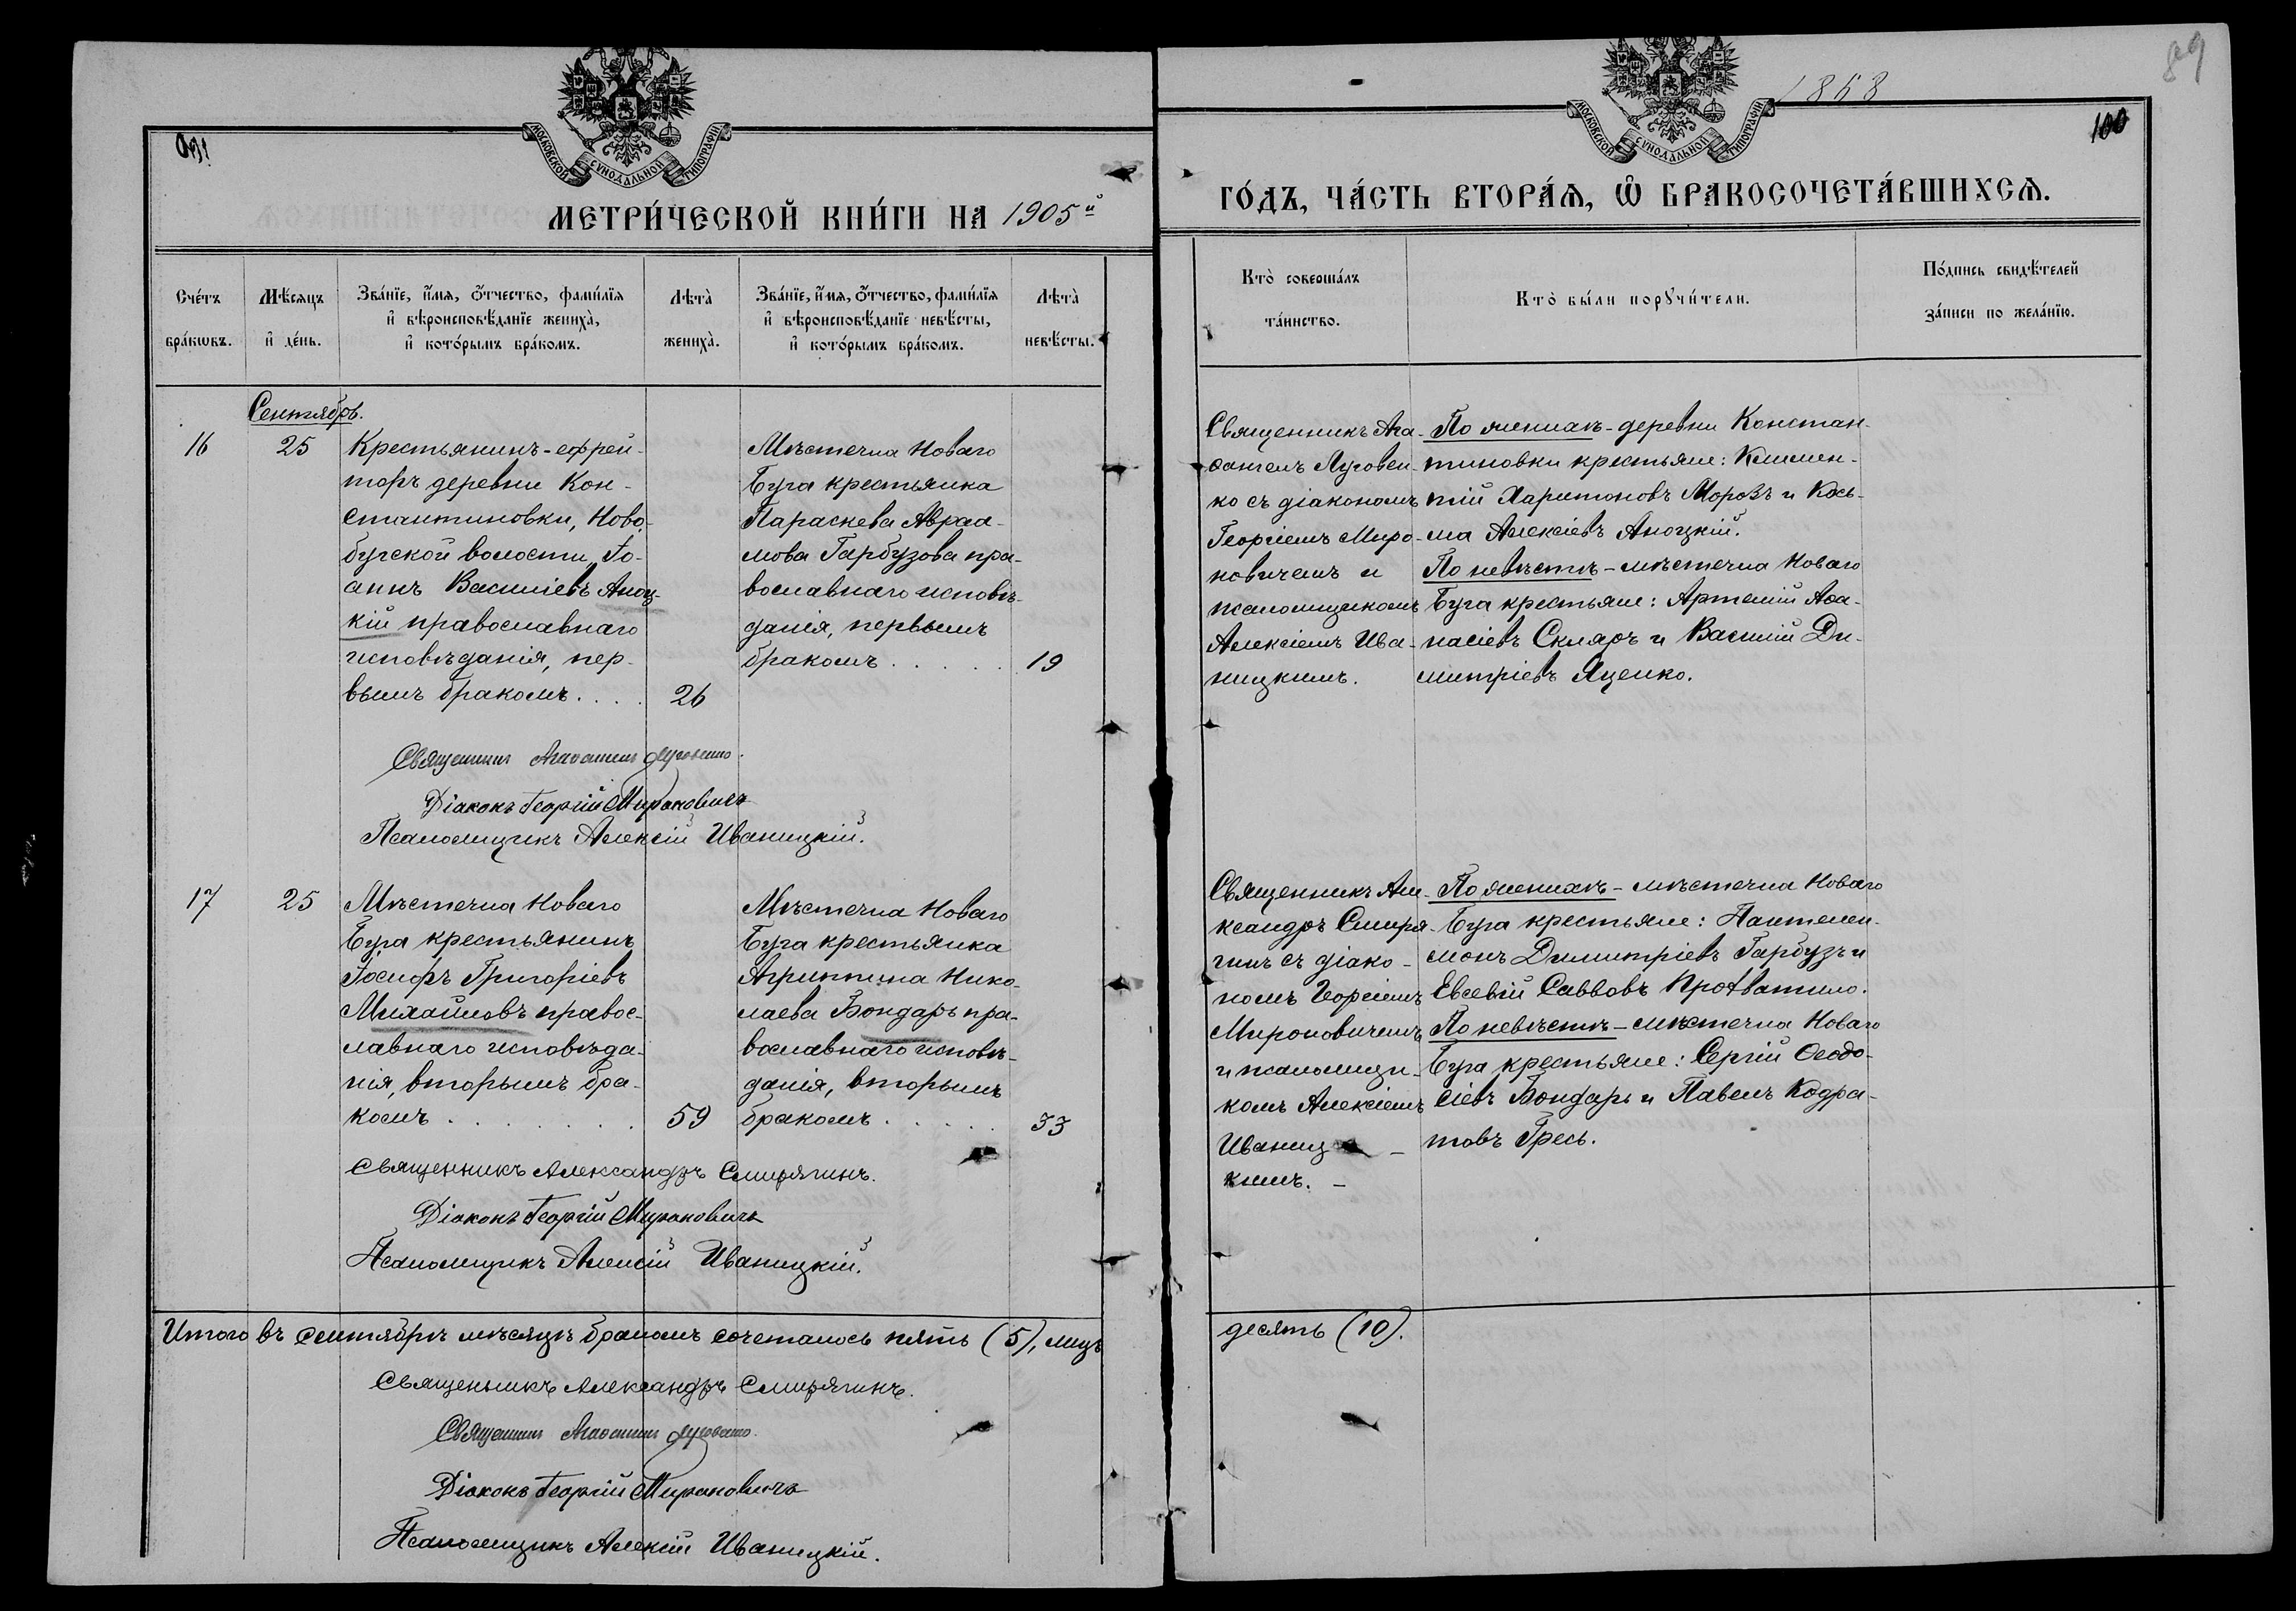 МОСКОВСКОЙ СѴНОДАЛЬНОЙ ТИПОГРАФІИ
МЕТРИ́ЧЕСКОЙ КНИ́ГИ НА 1905й
Сче́тъ бра́кѡвъ.
Мѣ́сяцъ и҆ де́нь.
Зва́нїе, и҆́мя, ѻ҆́тчество, фами́лїя
и҆ вѣроисповѣ́данїе жениха̀,
и҆ кото́рымъ бра́комъ.
Лѣта̀ жениха̀.
Зва́нїе, и҆́мя, ѻ҆́тчество, фами́лїя
и҆ вѣроисповѣ́данїе невѣ́сты,
и҆ кото́рымъ бра́комъ.
Лѣта̀ невѣ́сты.
Сентябрь.
16
25
Крестьянинъ-ефрей-
торъ деревни Кон-
стантиновки, Ново-
бугской волости, Іо-
аннъ Василіевъ Аноц-
кій православнаго
исповѣданія, пер-
вымъ бракомъ. . . .
26
Мѣстечка Новаго
Буга крестьянка
Параскева Авраа-
мова Гарбузова пра-
вославнаго исповѣ-
данія, первымъ
бракомъ . . . . .
19
Священникъ Агаѳангелъ Луговенко.
Діаконъ Георгій Мироновичъ
Псаломщикъ Алексій Иваницкій.
17
25
Мѣстечка Новаго
Буга крестьянинъ
Іосифъ Григоріевъ
Михайловъ правос-
лавнаго исповѣда-
нія, вторымъ бра-
комъ . . . . . . .
59
Мѣстечка Новаго
Буга крестьянка
Агриппина Нико-
лаева Бондарь пра-
вославнаго исповѣ-
данія, вторымъ
бракомъ . . . . .
33
Священникъ Александръ Смирягинъ.
Діаконъ Георгій Мироновичъ
Псаломщикъ Алексій Иваницкій.
Итого въ сентябрѣ мѣсяцѣ бракомъ сочеталось пять (5), лицъ
Священникъ Александръ Смирягинъ.
Священникъ Агаѳангелъ Луговенко.
Діаконъ Георгій Мироновичъ
Псаломщикъ Алексій Иваницкій.
1868
89
100
МОСКОВСКОЙ СѴНОДАЛЬНОЙ ТИПОГРАФІИ
ГО́ДЪ, ЧА́СТЬ ВТОРА́Ѧ, Ѡ҆ БРАКОСОЧЕТА́ВШИХСѦ.
Кто̀ соверша́лъ
та́инство.
Кто̀ бы́ли порꙋчи́тели.
По́дпись свидѣ́телей
за́писи по жела́нїю.
Священникъ Ага-
ѳангелъ Луговен-
ко съ діакономъ
Георгіемъ Миро-
новичемъ и
псаломщикомъ
Алексіемъ Ива-
ницкимъ.
По женихѣ - деревни Констан-
тиновки крестьяне: Климен-
тій Харитоновъ Морозъ и Кось-
ма Алексіевъ Аноцкій.
По невѣстѣ - мѣстечка Новаго
Буга крестьяне: Артемій Аѳа-
насіевъ Скляръ и Василій Ди-
митріевъ Яценко.
Священникъ Але-
ксандръ Смиря-
гинъ съ діако-
номъ Георгіемъ
Мироновичемъ
и псаломщи-
комъ Алексіемъ
Иваниц-
кимъ. -
По женихѣ - мѣстечка Новаго
Буга крестьяне: Пантелеи-
монъ Димитріевъ Гарбузъ и
Евсевій Саввовъ Протватило.
По невѣстѣ - мѣстечка Новаго
Буга крестьяне: Сергій Ѳеодо-
сіевъ Бондарь и Павелъ Кодра-
товъ Гресь.
десять (10).